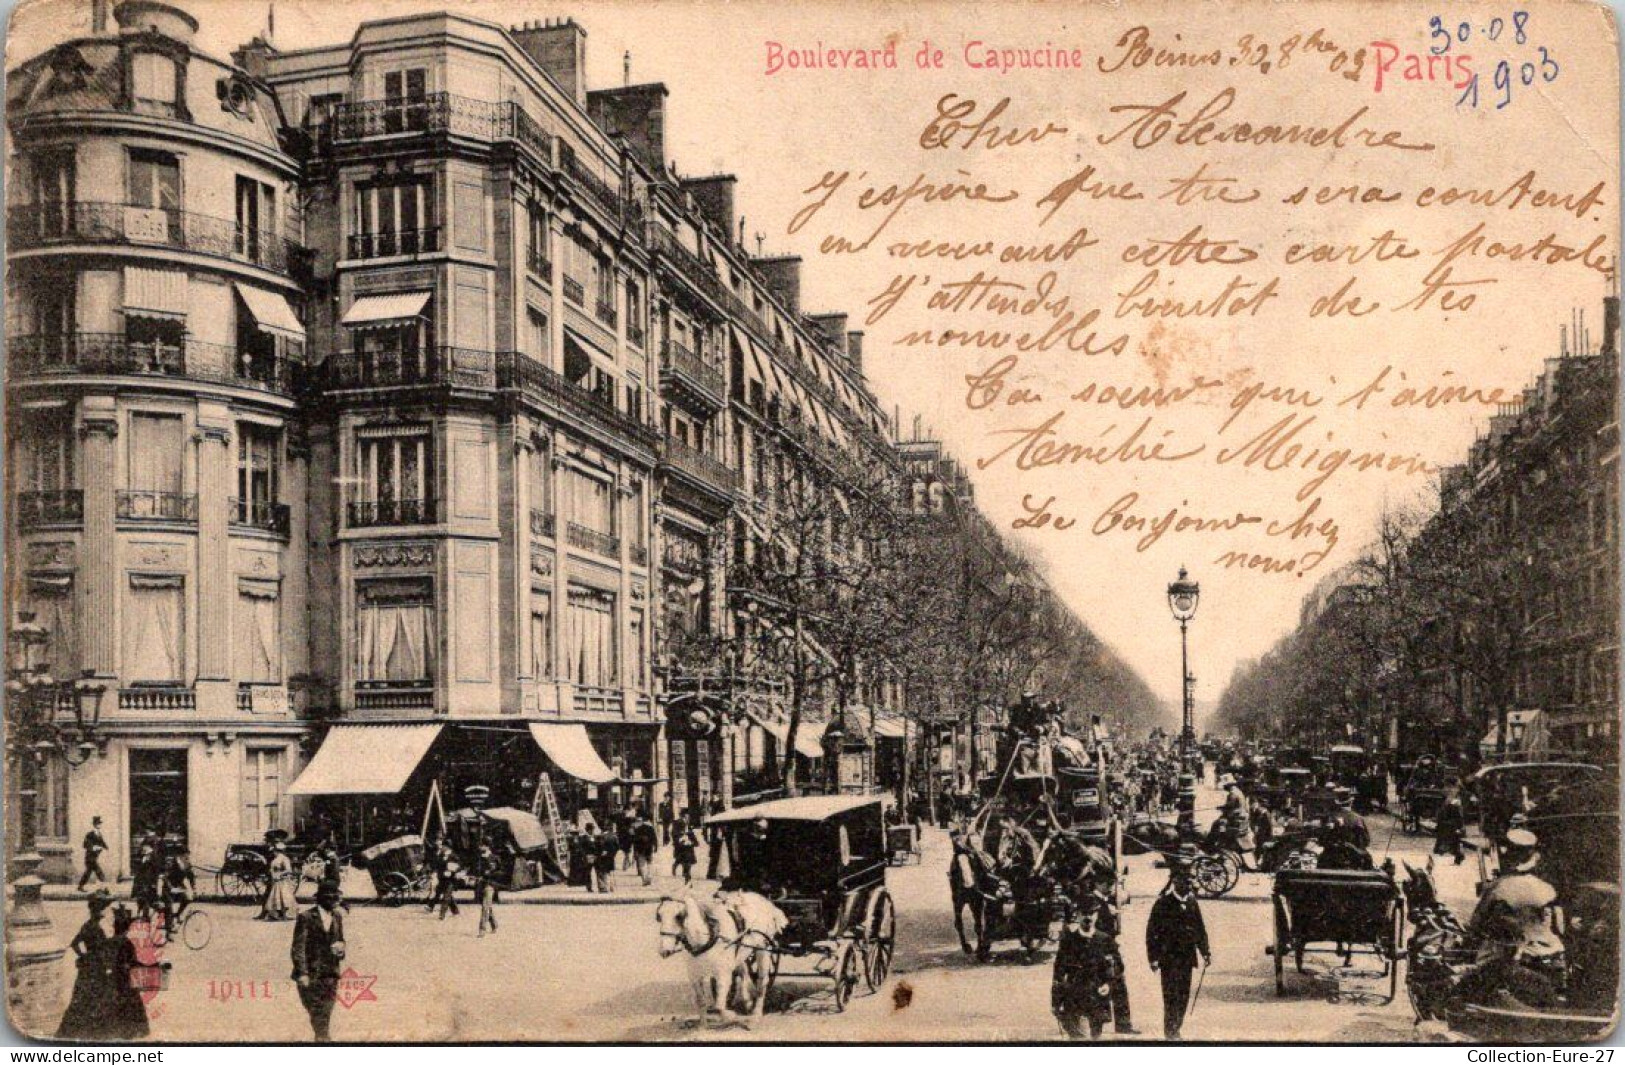 Boulevard de Capucine
Reims 30. 8bre 03
Paris
30-08
1903
Cher Alexandre
J'espère que tu sera content
en recevant cette carte postale
J'attends bientot de tes
nouvelles
Ta soeur qui t'aime
Amélie Mignon
Le Bonjour chez
nous
ES
10111
delcampe.net
Collection-Eure-27